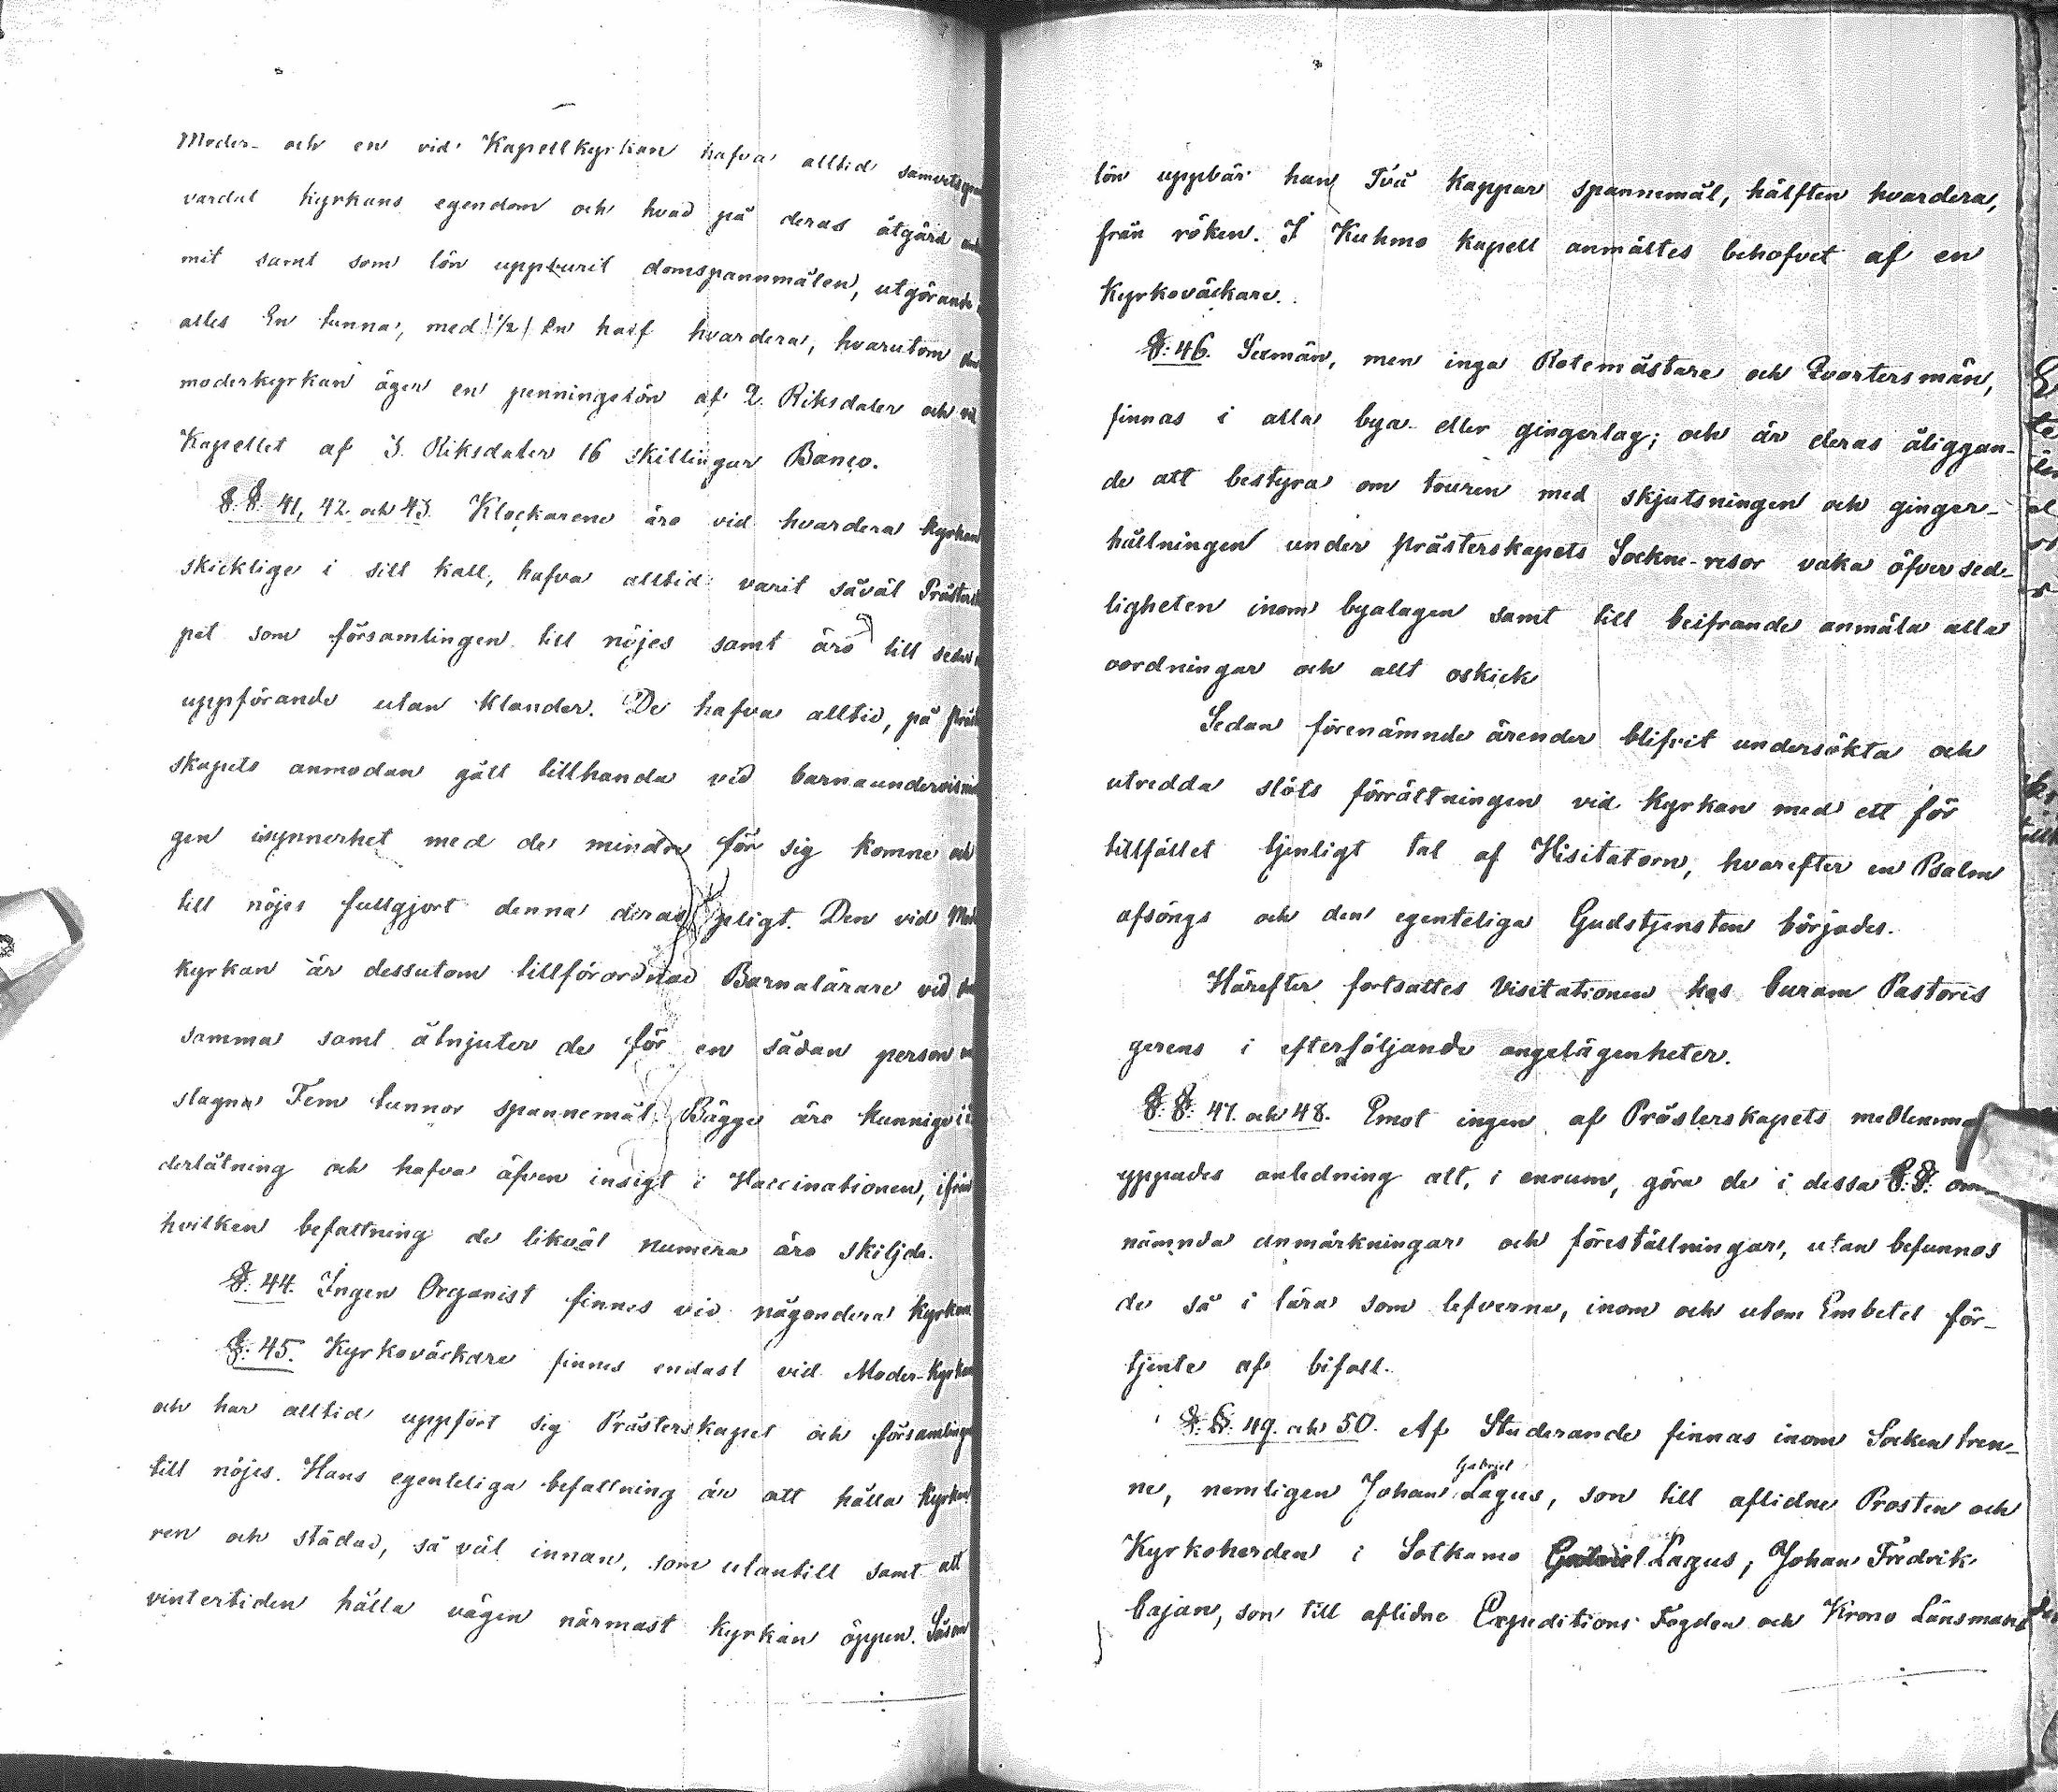 Moder- och en vid Kapellkyrkan hafva alltid samvetsgran
vardat kyrkans egendom och hvad på deras åtgärd
mit samt som lön uppburit domspannmålen, utgörande
alles En tunna, med /1/2/ En half hvardera, hvarutom
moderkyrkan äger en penningelön af 2. Riksdaler och vid
Kapellet af 3. Riksdaler 16 skillingar Banco.
§.§. 41, 42. och 43. Klockarene äro vid hvardera kyrkan
skicklige i sitt kall, hafva alltid varit såväl Prästerska
pet som församlingen till nöjes samt äro till seder
uppförande utan klander. De hafva alltid, på präst
skapets anmodan gått tillhanda vid barnaundervisnin
gen isynnerhet med de mindre för sig komne och
till nöjes fullgjort denna deras pligt. Den vid Mod
kyrkan är dessutom tillförordnad Barnalärare vid
samma samt åtnjuter de för en sådan person
slagna Fem tunnor spannemål. Bägge äro kunnige i
derlåtning och hafva äfven insigt i Vaccinationen, ifrån
hvilken befattning de likväl numera äro skiljde.
§. 44. Ingen Organist finnes vid någondera kyrkan
§. 45. Kyrkoväckare finnes endast vid Moder-kyrkan
och har alltid uppfört sig Prästerskapet och församlinge
till nöjes. Hans egenteliga befattning är att hålla kyrkan
ren och städad, så väl innan, som utantill samt att
vintertiden hålla vägen närmast kyrkan öppen. Såsom
lön uppbär han Två kappar spannemål, hälften hvardera,
från röken. I Kuhmo kapell anmältes behofvet af en
Kyrkoväckare.
§. 46. Sexmän, men inga Rotemästare och Qvartersmän,
finnas i alla bya- eller gingerlag; och är deras åliggan-
de att bestyra om touren med skjutsningen och ginger-
hållningen under prästerskapets Sockne-resor vaka öfver sed-
ligheten inom byalagen samt till beifrande anmäla alla
oordningar och allt oskick
Sedan förenämnde ärender blifvit undersökta och
utredda slöts förrättningen vid kyrkan med ett för
tillfället tjenligt tal af Visitatorn, hvarefter en Psalm
afsöngs och den egenteliga Gudstjensten börjades.
Härefter fortsattes Visitationen hos Curam Pastoris
gerens i efterföljande angelägenheter.
§.§. 47. och 48. Emot ingen af Prästerskapets medlemma
yppades anledning att, i enrum, göra de i dessa §.§. om
nämnda anmärkningar och föreställningar, utan befunnos
de så i lära som lefverne, inom och utom Embetet för-
tjente af bifall.
§.§. 49. och 50. Af Studerande finnas inom Socken tren-
ne, nemligen Johan Gabriel Lagus, son till aflidne Prosten och
Kyrkoherden i Sotkamo Gabriel Lagus, Johan Fredrik
Cajan, son till aflidne Expeditions Fogden och Krono Länsmans